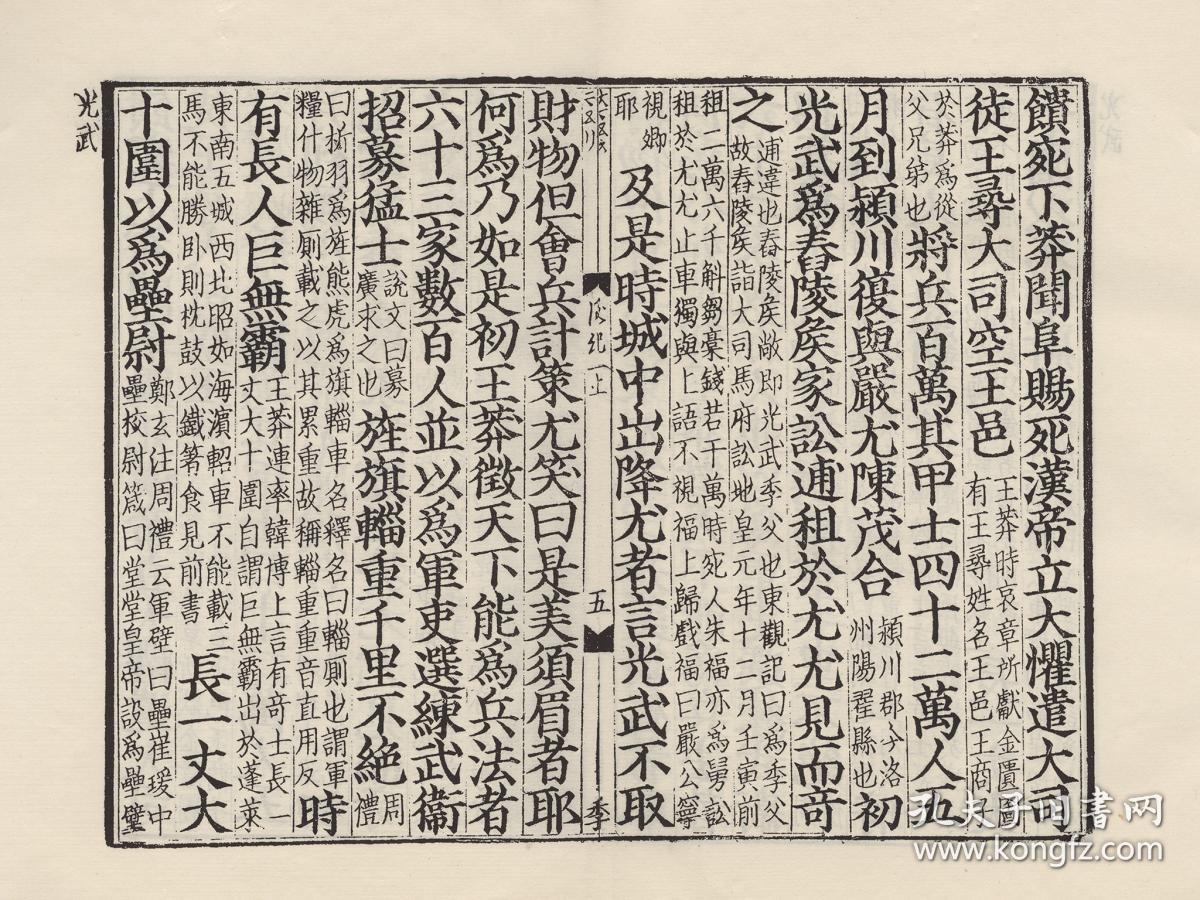 饋宛下莽聞阜賜死漢帝立大懼遣大司
徒王尋大司空王邑
王莽時哀章所獻金匱圖
有王尋姓名王邑王商子
於莽爲從
父兄弟也
將兵百萬其甲士四十二萬人五
月到潁川復與嚴尤陳茂合
潁川郡今洛
州陽翟縣也
初
光武爲舂陵侯家訟逋租於尤尤見而竒
之
逋違也舂陵侯敞即光武季父也東觀記曰爲季父
故舂陵侯詣大司馬府訟地皇元年十二月壬寅前
租二萬六千斛芻稾錢若干萬時宛人朱福亦爲舅訟
租於尤尤止車獨與上語不視福上歸戲福曰嚴公寧
視卿
耶
及是時城中出降尤者言光武不取
後紀一上
五
季
財物但會兵計策尤笑曰是美須眉者耶
何爲乃如是初王莽徵天下能爲兵法者
六十三家數百人並以爲軍吏選練武衞
招募猛士
說文曰募
廣求之也
旌旗輜重千里不絶
周
禮
曰析羽爲旌熊虎爲旗輜車名釋名曰輜厠也謂軍
糧什物雜厠載之以其累重故稱輜重重音直用反
時
有長人巨無霸
王莽連率韓博上言有竒士長一
丈大十圍自謂巨無霸出於蓬萊
東南五城西北昭如海濵軺車不能載三
馬不能勝卧則枕鼓以鐵箸食見前書
長一丈大
十圍以爲壘尉
鄭玄注周禮云軍壁曰壘崔瑗中
壘校尉箴曰堂堂皇帝設爲壘壁
光武
孔夫子旧书网
www.kongfz.com